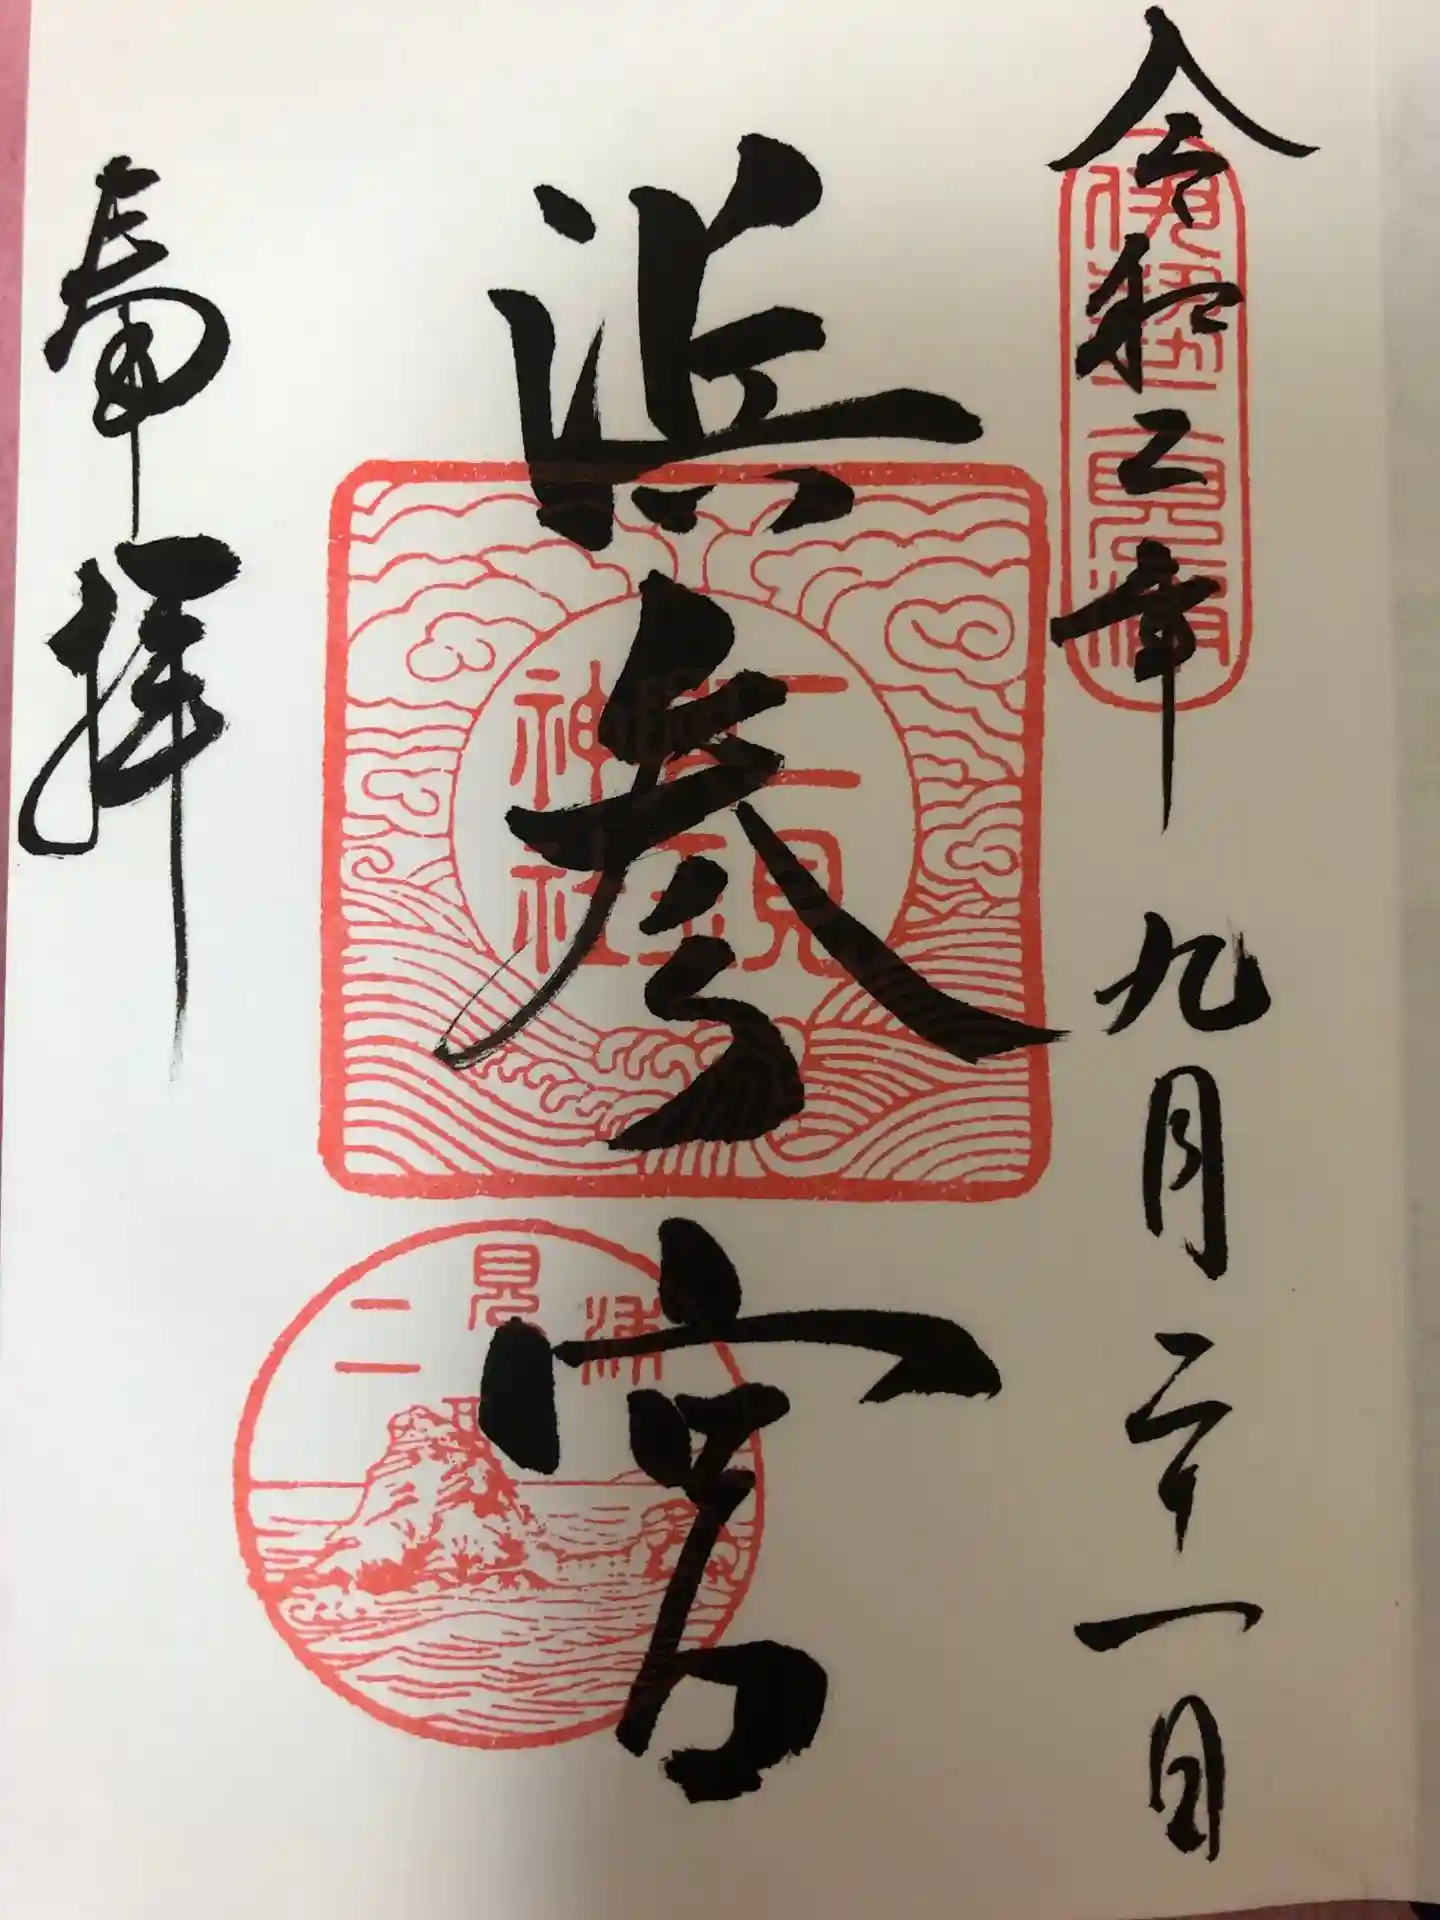 令和二年九月二十一日
伊勢二見浦
浜参宮
二見
興玉
神社
二見浦
奉拝